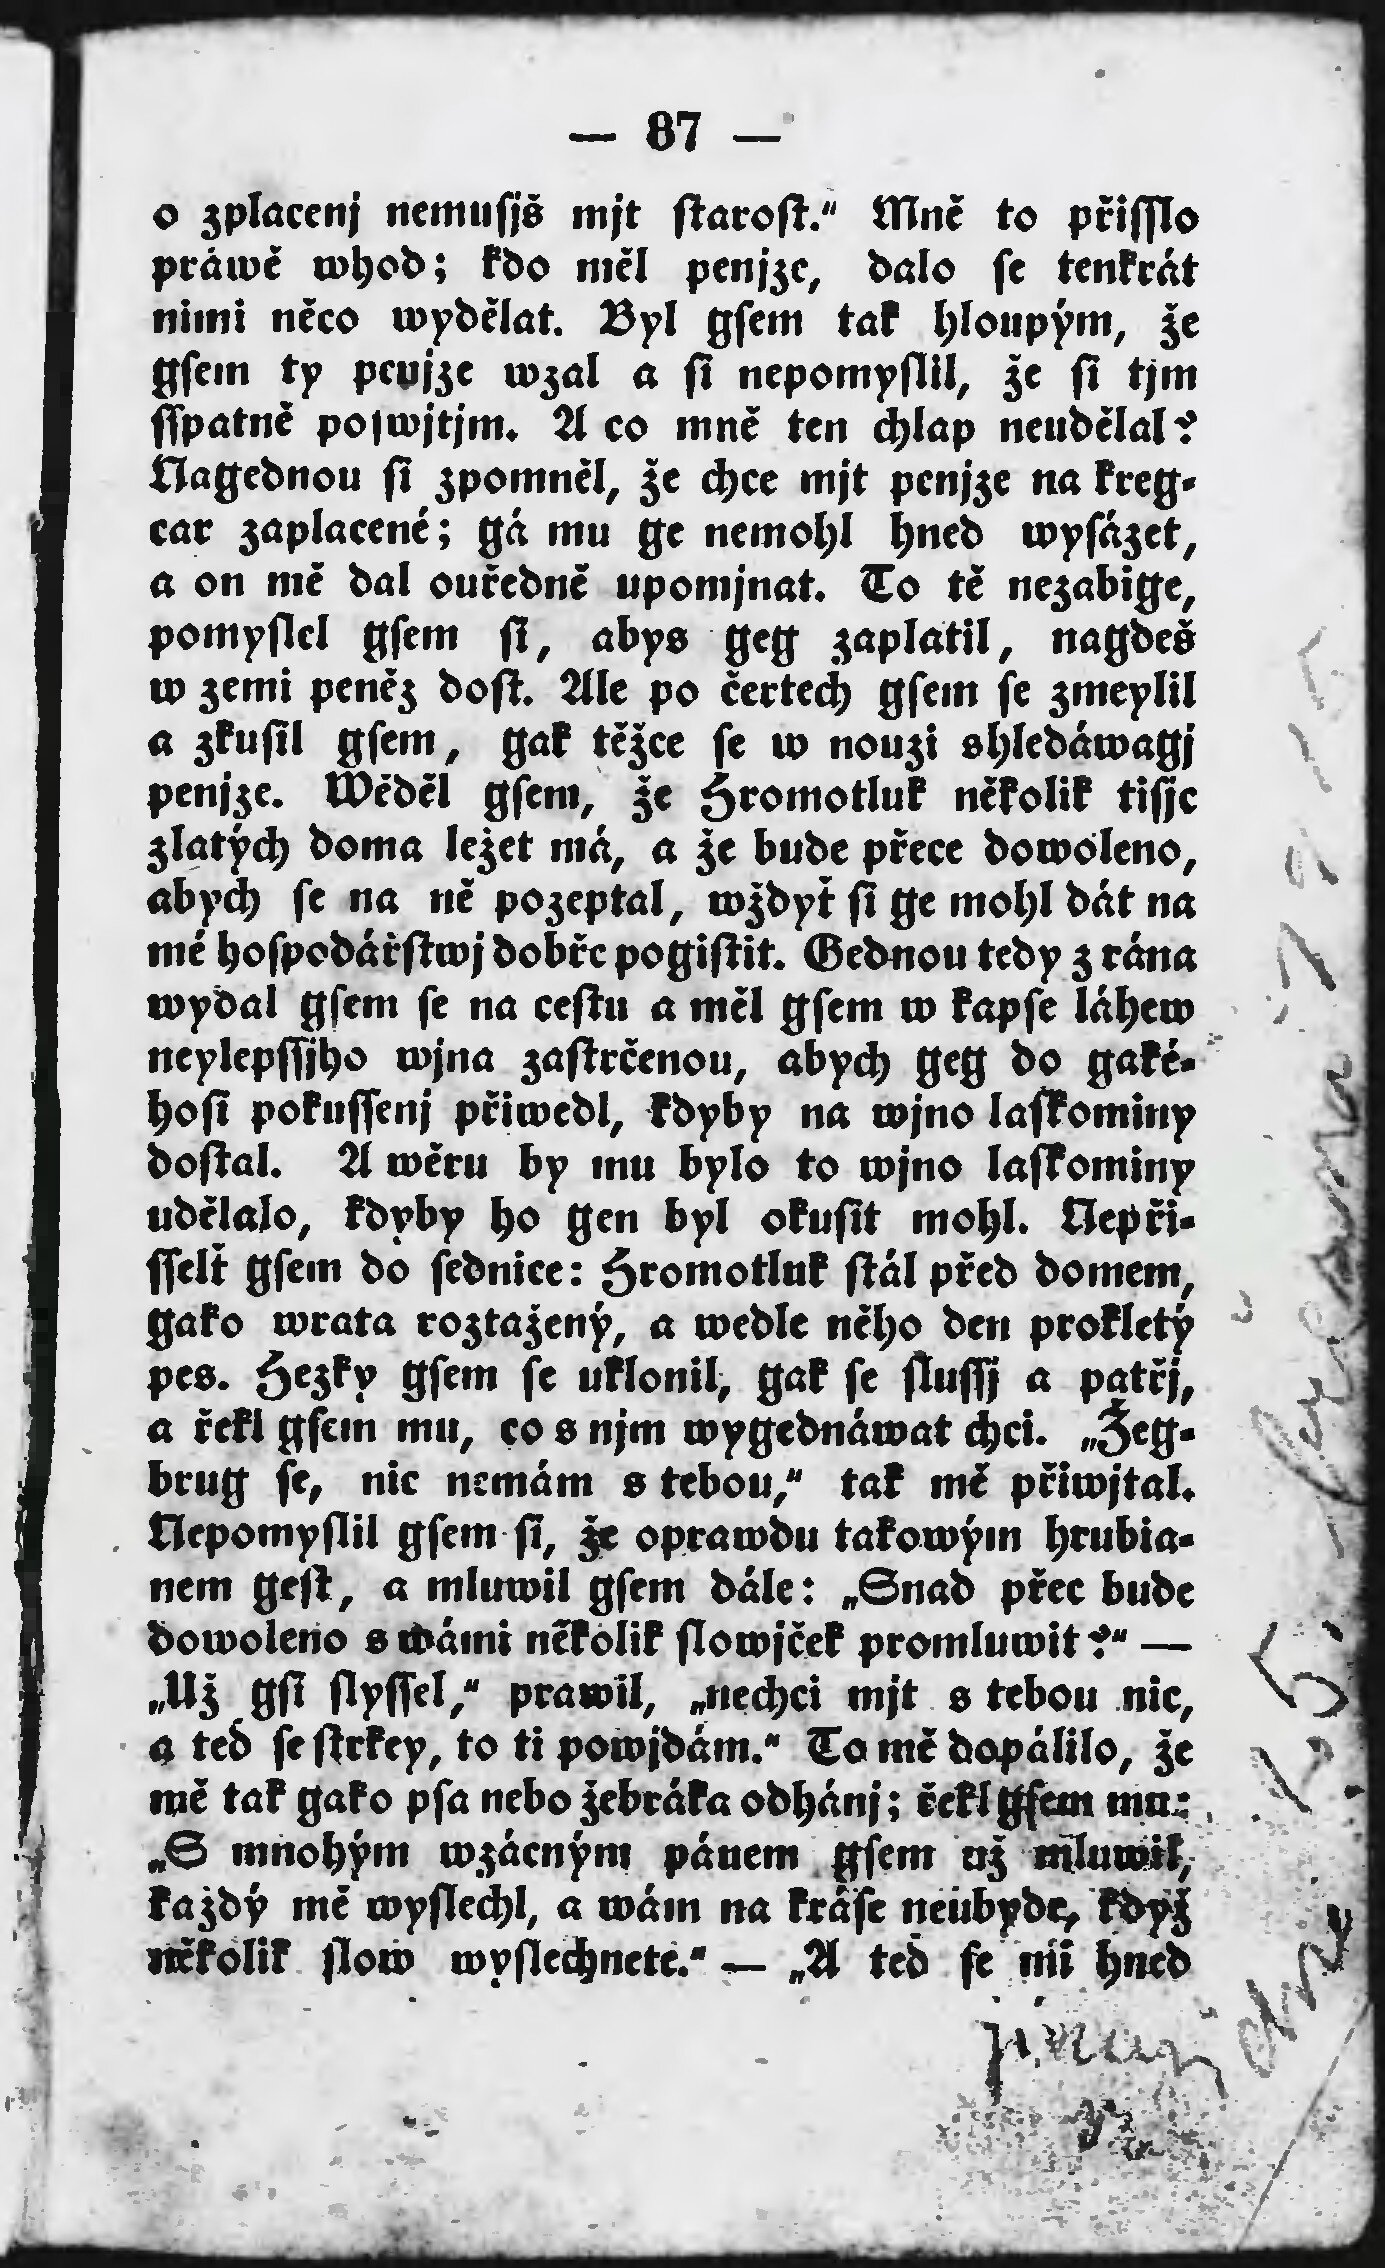 — 87 —
o zplacenj nemusjš mjt starost.“ Mně to přišslo
práwě whod; kdo měl penjze, dalo se tenkrát
nimi něco wydělat. Byl gsem tak hloupým, že
gsem ty penjze wzal a si nepomyslil, že si tjm
sspatně poswjtjm. A co mně ten chlap neudělal?
Nagednou si zpomněl, že chce mjt penjze na kreg-
car zaplacené; gá mu ge nemohl hned wysázet,
a on mě dal ouředně upomjnat. To tě nezabige,
pomyslel gsem si, abys geg zaplatil, nagdeš
w zemi peněz dost. Ale po čertech gsem se zmeylil
a zkusil gsem, gak těžce se w nouzi shledáwagj
penjze. Wěděl gsem, že Hromotluk několik tisjc
zlatých doma ležet má, a že bude přece dowoleno,
abych se na ně pozeptal, wždyť si ge mohl dát na
mé hospodářstwj dobře pogistit. Gednou tedy z rána
wydal gsem se na cestu a měl gsem w kapse láhew
neylepssjho wjna zastrčenou, abych geg do gaké-
hosi pokussenj přiwedl, kdyby na wjno laskominy
dostal. A wěru by mu bylo to wjno laskominy
udělalo, kdyby ho gen byl okusit mohl. Nepři-
sselť gsem do sednice: Hromotluk stál před domem,
gako wrata roztažený, a wedle něho den prokletý
pes. Hezky gsem se uklonil, gak se slussj a patřj,
a řekl gsem mu, co s njm wygednáwat chci. „Žeg-
brug se, nic nemám s tebou,“ tak mě přiwjtal.
Nepomyslil gsem si, že oprawdu takowým hrubia-
nem gest, a mluwil gsem dále: „Snad přec bude
dowoleno s wámi několik slowjček promluwit?“ —
„Už gsi slyssel,“ prawil, „nechci mjt s tebou nic,
a teď se strkey, to ti powjdám.“ To mě dopálilo, že
mě tak gako psa nebo žebráka odhánj; řekl gsem mu:
„S mnohým wzácným pánem gsem už mluwil,
každý mě wyslechl, a wám na kráse neubyde, když
několik slow wyslechnete.“ — „A teď se mi hned